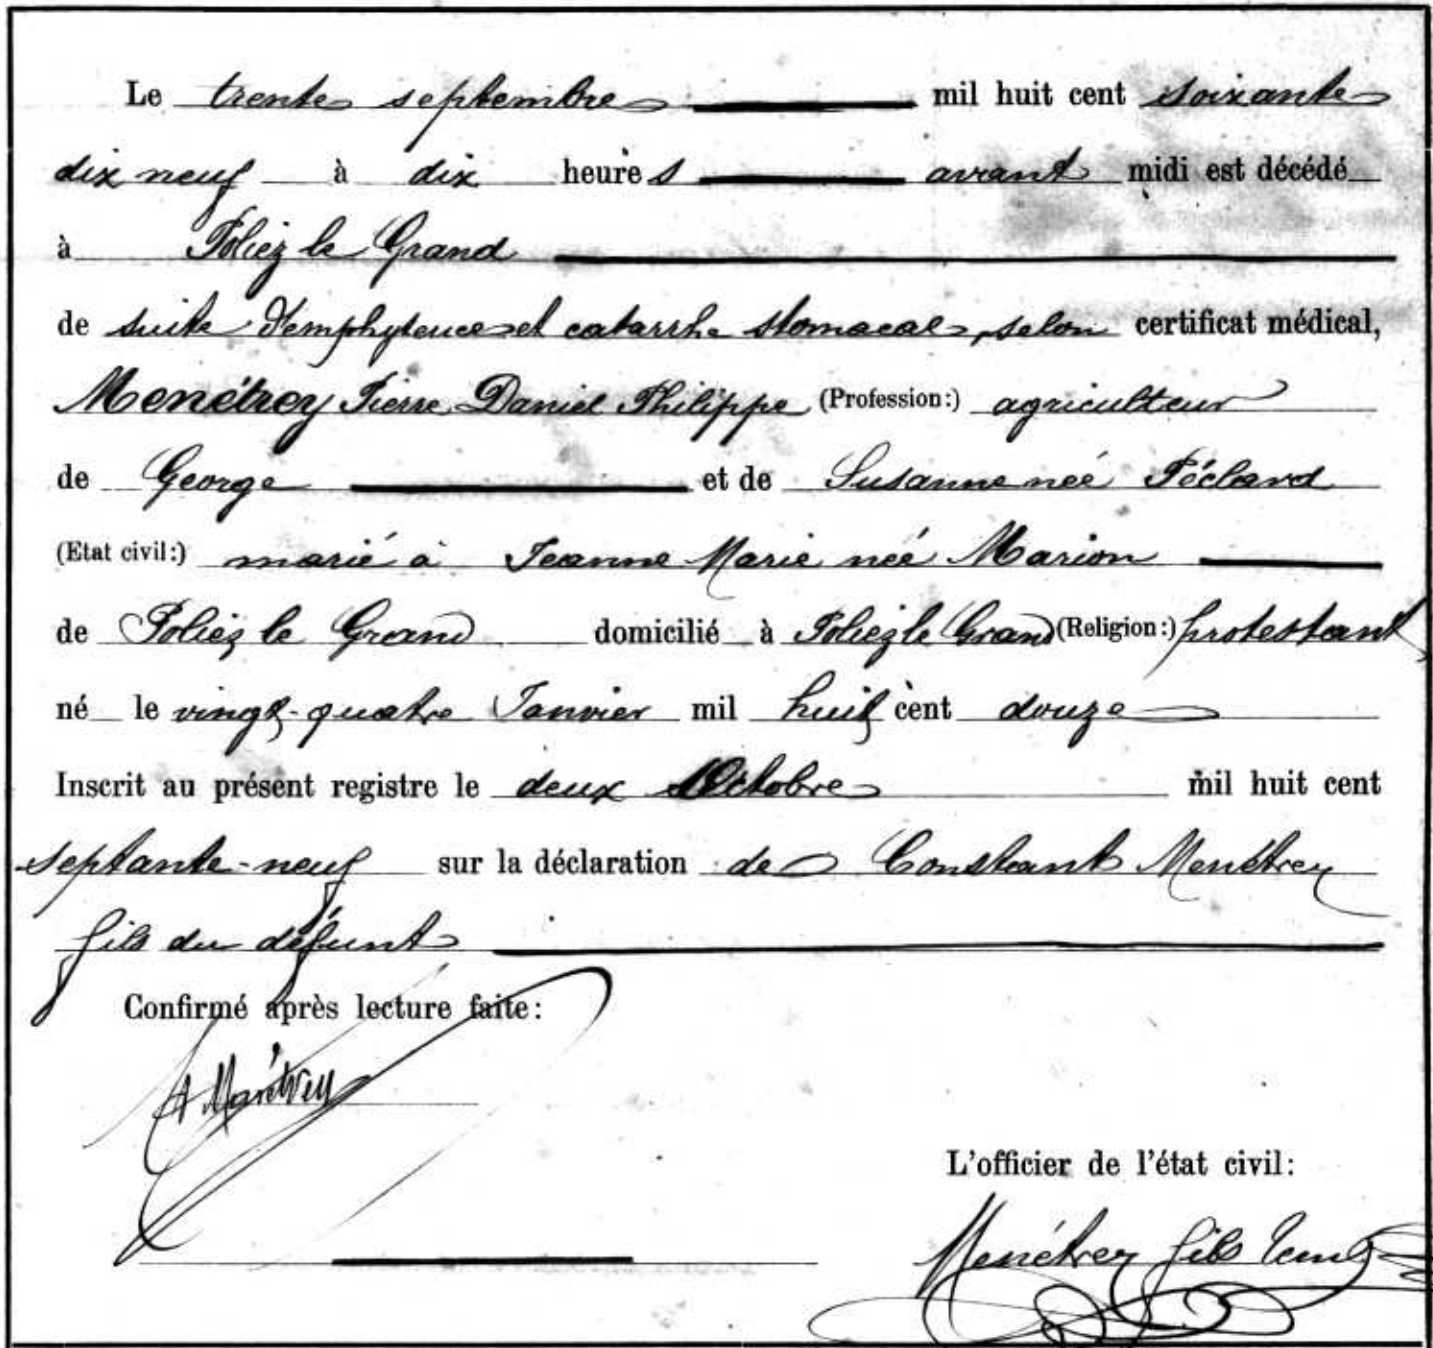 Le trente septembre mil huit cent soixante
dix neuf à dix heures avant midi est décédé
à Poliez le Grand
de suite d'emphyteuce et catarrhe stomacal, selon certificat médical,
Menétrey Pierre Daniel Philippe (Profession:) agriculteur
de George et de Susanne née Péclard
(Etat civil:) marié à Jeanne Marie née Marion
de Poliez le Grand domicilié à Poliez le Grand (Religion:) protestant
né le vingt-quatre Janvier mil huit cent douze
Inscrit au présent registre le deux Octobre mil huit cent
septante-neuf sur la déclaration de Constant Menétrey
fils du défunt
Confirmé après lecture faite:
Menétrey
L'officier de l'état civil:
Menétrey fils